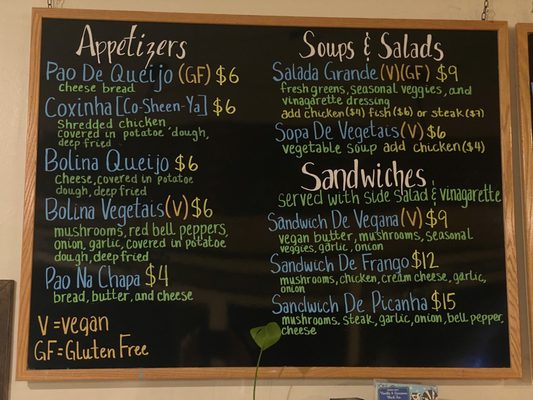 Appetizers
Pao De Queijo (GF) $6
cheese bread
Coxinha [Co-Sheen-Ya] $6
Shredded chicken
covered in potatoe dough,
deep fried
Bolina Queijo $6
Cheese, covered in potatoe
dough, deep fried
Bolina Vegetais (V) $6
mushrooms, red bell peppers,
onion, garlic, covered in potatoe
dough, deep fried
Pao Na Chapa $4
bread, butter, and cheese
V = vegan
GF = Gluten Free
Soups & Salads
Salada Grande (V) (GF) $9
fresh greens, seasonal veggies, and
vinagarette dressing
add chicken ($4) fish ($6) or steak ($7)
Sopa De Vegetais (V) $6
vegetable soup add chicken ($4)
Sandwiches
served with side salad & vinagarette
Sandwich De Vegana (V) $9
vegan butter, mushrooms, seasonal
veggies, garlic, onion
Sandwich De Frango $12
mushrooms, chicken, cream cheese, garlic,
onion
Sandwich De Picanha $15
mushrooms, steak, garlic, onion, bell pepper,
cheese